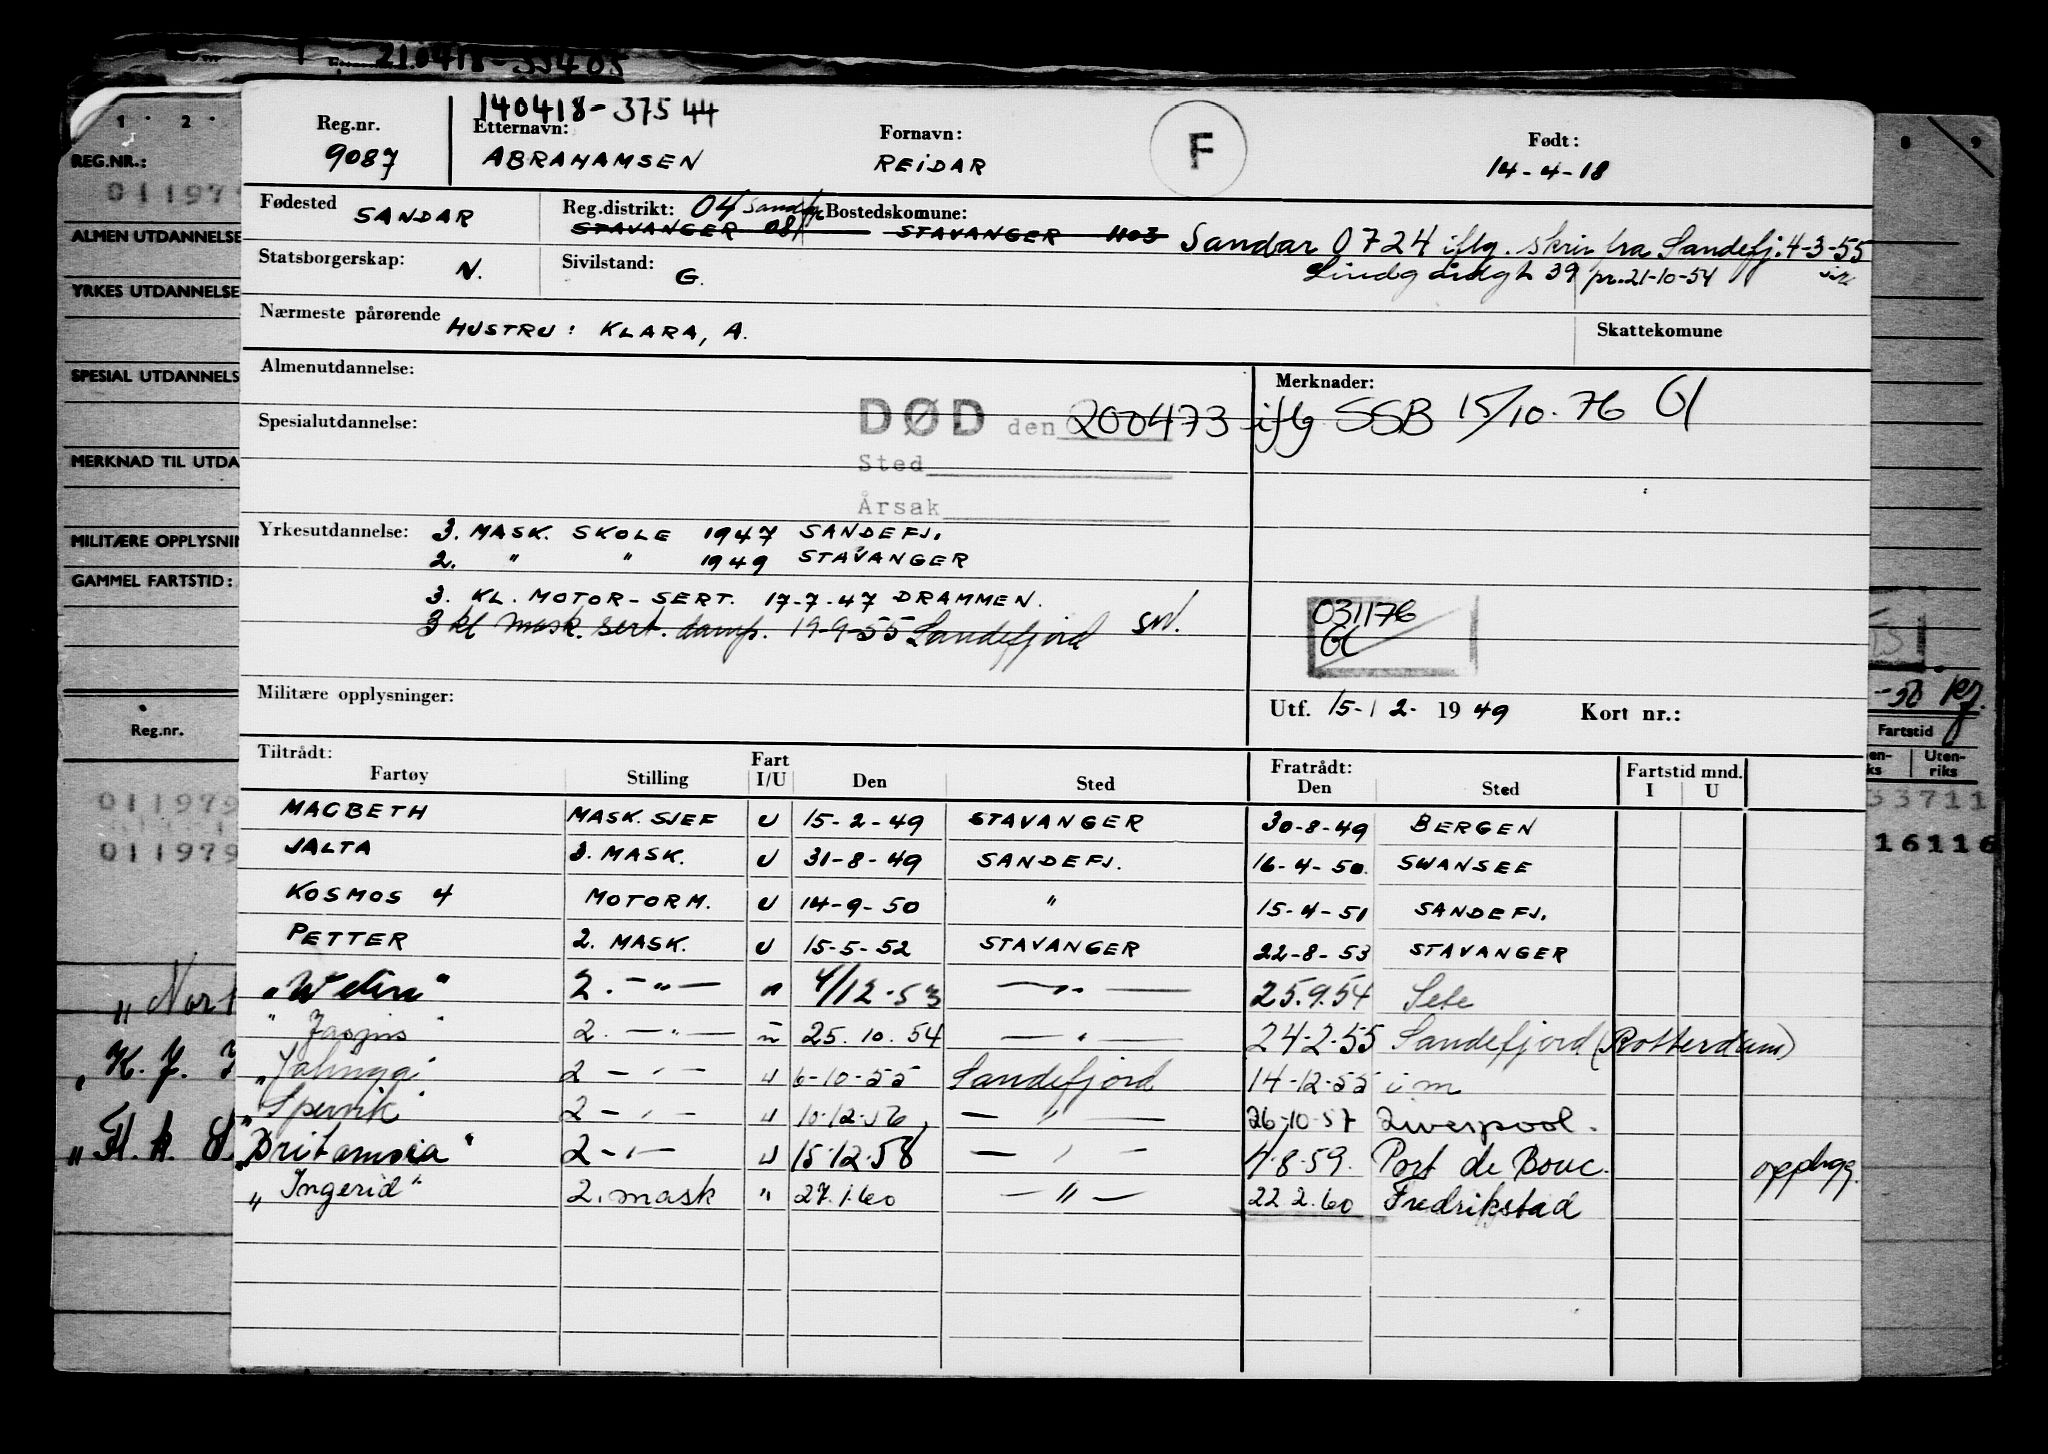 210418-33405
140418-37544
Reg.nr. Etternavn: Fornavn: F Født:
9087 ABRAHAMSEN REIDAR 14-4-18
Fødested SANDAR Reg.distrikt: 04 Bostedskomune:
STAVANGER 081 STAVANGER 1103 Sandar 0724 iflg. skriv fra Sandefj. 4-3-55
Statsborgerskap: N. Sivilstand: G. Lindgårdgt 39 pr. 21-10-54
Nærmeste pårørende HUSTRU: KLARA, A. Skattekomune
Almenutdannelse: Merknader:
Spesialutdannelse: DØD den 200473 iflg SSB 15/10-76 Gl
Sted
Årsak
Yrkesutdannelse: 3. MASK. SKOLE 1947 SANDEFJ.
2. " " 1949 STAVANGER
3. KL. MOTOR-SERT. 17-7-47 DRAMMEN.
3 kl mask. sert. damp. 19-9-55 Sandefjord SW.
031176
Gl
Militære opplysninger: Utf. 15-12-1949 Kort nr.:
Tiltrådt: Fart Fratrådt: Fartstid mnd.
Fartøy Stilling I/U Den Sted Den Sted I U
MACBETH MASK. SJEF U 15-2-49 STAVANGER 30-8-49 BERGEN
JALTA 3. MASK. U 31-8-49 SANDEFJ. 16-4-50 SWANSEE
KOSMOS 4 MOTORM. U 14-9-50 " 15-4-51 SANDEFJ.
PETTER 2. MASK. U 15-5-52 STAVANGER 22-8-53 STAVANGER
2. —"— 4/12-53 —"— 25.9.54 Sete
2. —"— 25.10.54 —"— 24-2-55 Sandefjord (Rotterdam)
2 —"— U 6-10-55 Sandefjord 14-12-55 im
"Spervik" 2 —"— U 10-12-56 —"— 26-10-57 Liverpool.
2 —"— U 15-12-58 —"— 4-8-59. Port de Bouc. opphugg.
"Ingerid" 2. mask " 27.1.60 —"— 22.2.60 Fredrikstad
1 2
REG.NR.:
011979
ALMEN UTDANNELSE
YRKES UTDANNELSE
SPESIAL UTDANNELS
MERKNAD TIL UTDA
MILITÆRE OPPLYSNIN
GAMMEL FARTSTID:
Reg.nr.
011979
011979
"Nor
"K. J.
8 9
Fartstid
Uten-
riks
33711
16116